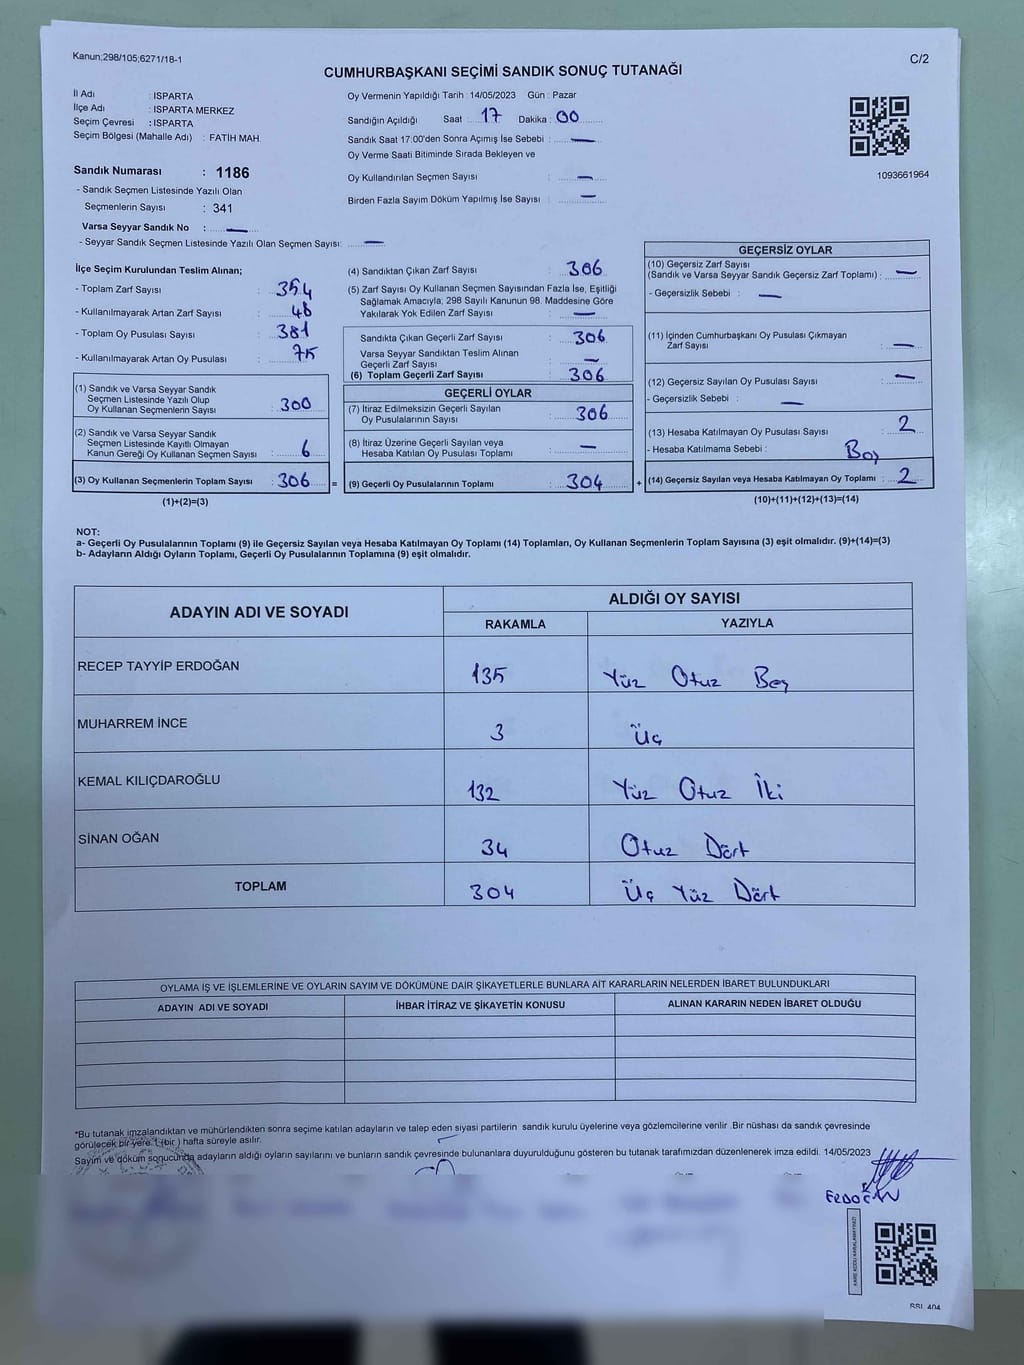 Kanun;298/105;6271/18-1
C/2
CUMHURBAŞKANI SEÇİMİ SANDIK SONUÇ TUTANAĞI
İl Adı : ISPARTA
İlçe Adı : ISPARTA MERKEZ
Seçim Çevresi : ISPARTA
Seçim Bölgesi (Mahalle Adı) : FATİH MAH.
Oy Vermenin Yapıldığı Tarih : 14/05/2023 Gün : Pazar
Sandığın Açıldığı Saat : 17 Dakika : 00
Sandık Saat 17:00'den Sonra Açımış İse Sebebi : —
Oy Verme Saati Bitiminde Sırada Bekleyen ve
Oy Kullandırılan Seçmen Sayısı : —
Birden Fazla Sayım Döküm Yapılmış İse Sayısı : —
1093661964
Sandık Numarası : 1186
- Sandık Seçmen Listesinde Yazılı Olan
Seçmenlerin Sayısı : 341
Varsa Seyyar Sandık No : —
- Seyyar Sandık Seçmen Listesinde Yazılı Olan Seçmen Sayısı: —
İlçe Seçim Kurulundan Teslim Alınan;
- Toplam Zarf Sayısı : 354
- Kullanılmayarak Artan Zarf Sayısı : 48
- Toplam Oy Pusulası Sayısı : 381
- Kullanılmayarak Artan Oy Pusulası : 75
(1) Sandık ve Varsa Seyyar Sandık
Seçmen Listesinde Yazılı Olup
Oy Kullanan Seçmenlerin Sayısı : 300
(2) Sandık ve Varsa Seyyar Sandık
Seçmen Listesinde Kayıtlı Olmayan
Kanun Gereği Oy Kullanan Seçmen Sayısı : 6
(3) Oy Kullanan Seçmenlerin Toplam Sayısı : 306
(1)+(2)=(3)
(4) Sandıktan Çıkan Zarf Sayısı : 306
(5) Zarf Sayısı Oy Kullanan Seçmen Sayısından Fazla İse, Eşitliği
Sağlamak Amacıyla; 298 Sayılı Kanunun 98. Maddesine Göre
Yakılarak Yok Edilen Zarf Sayısı : —
Sandıkta Çıkan Geçerli Zarf Sayısı : 306
Varsa Seyyar Sandıktan Teslim Alınan
Geçerli Zarf Sayısı : —
(6) Toplam Geçerli Zarf Sayısı : 306
GEÇERLİ OYLAR
(7) İtiraz Edilmeksizin Geçerli Sayılan
Oy Pusulalarının Sayısı : 306
(8) İtiraz Üzerine Geçerli Sayılan veya
Hesaba Katılan Oy Pusulası Toplamı : —
= (9) Geçerli Oy Pusulalarının Toplamı : 304 +
GEÇERSİZ OYLAR
(10) Geçersiz Zarf Sayısı
(Sandık ve Varsa Seyyar Sandık Geçersiz Zarf Toplamı) : —
- Geçersizlik Sebebi : —
(11) İçinden Cumhurbaşkanı Oy Pusulası Çıkmayan
Zarf Sayısı : —
(12) Geçersiz Sayılan Oy Pusulası Sayısı : —
- Geçersizlik Sebebi : —
(13) Hesaba Katılmayan Oy Pusulası Sayısı : 2
- Hesaba Katılmama Sebebi : Boş
(14) Geçersiz Sayılan veya Hesaba Katılmayan Oy Toplamı : 2
(10)+(11)+(12)+(13)=(14)
NOT:
a- Geçerli Oy Pusulalarının Toplamı (9) ile Geçersiz Sayılan veya Hesaba Katılmayan Oy Toplamı (14) Toplamları, Oy Kullanan Seçmenlerin Toplam Sayısına (3) eşit olmalıdır. (9)+(14)=(3)
b- Adayların Aldığı Oyların Toplamı, Geçerli Oy Pusulalarının Toplamına (9) eşit olmalıdır.
ADAYIN ADI VE SOYADI ALDIĞI OY SAYISI
RAKAMLA YAZIYLA
RECEP TAYYİP ERDOĞAN 135 Yüz Otuz Beş
MUHARREM İNCE 3 Üç
KEMAL KILIÇDAROĞLU 132 Yüz Otuz İki
SİNAN OĞAN 34 Otuz Dört
TOPLAM 304 Üç Yüz Dört
OYLAMA İŞ VE İŞLEMLERİNE VE OYLARIN SAYIM VE DÖKÜMÜNE DAİR ŞİKAYETLERLE BUNLARA AİT KARARLARIN NELERDEN İBARET BULUNDUKLARI
ADAYIN ADI VE SOYADI İHBAR İTİRAZ VE ŞİKAYETİN KONUSU ALINAN KARARIN NEDEN İBARET OLDUĞU
*Bu tutanak imzalandıktan ve mühürlendikten sonra seçime katılan adayların ve talep eden siyasi partilerin sandık kurulu üyelerine veya gözlemcilerine verilir .Bir nüshası da sandık çevresinde
görülecek bir yere 1 (bir ) hafta süreyle asılır.
Sayım ve döküm sonucunda adayların aldığı oyların sayılarını ve bunların sandık çevresinde bulunanlara duyurulduğunu gösteren bu tutanak tarafımızdan düzenlenerek imza edildi. 14/05/2023
ERDOĞAN